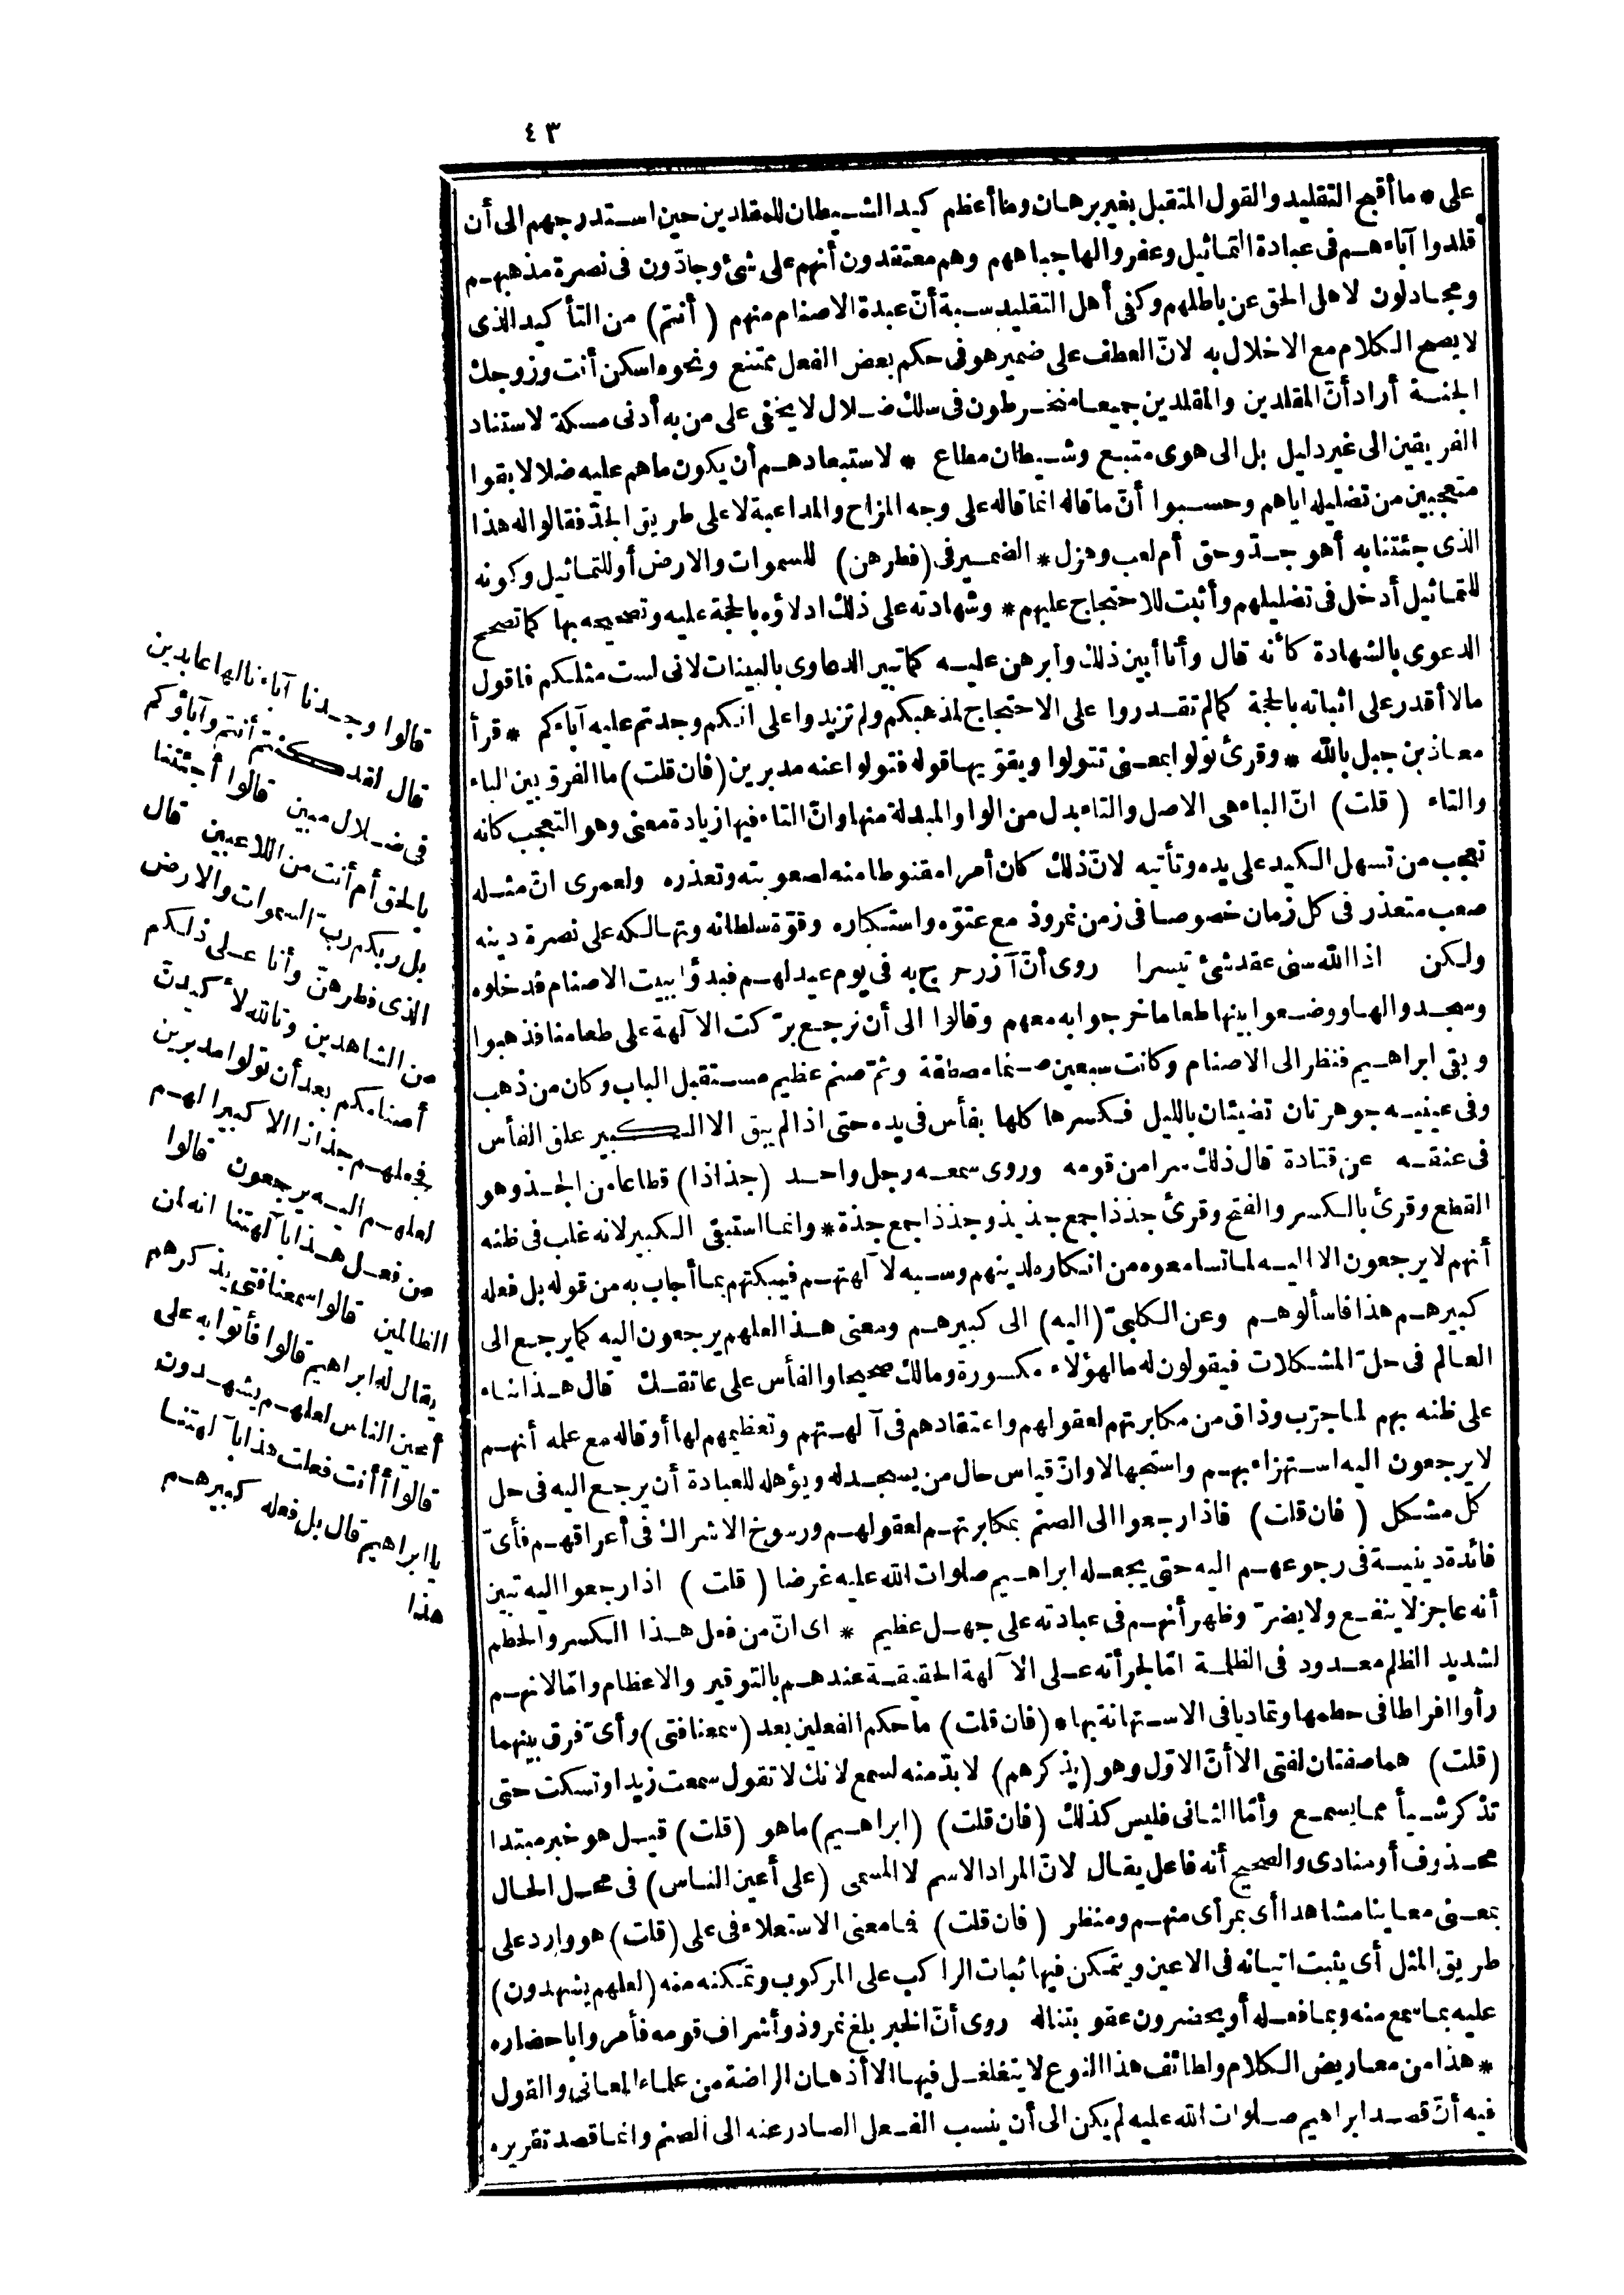 ٤٣
على * ما أقبح التقليد والقول المتقبل بغير برهان وما أعظم كيد الشيطان للمقلدين حين استدرجهم الى أن
قلدوا آباءهم فى عبادة التماثيل وعفروا لها جباههم وهم معتقدون أنهم على شئ وجادّون فى نصرة مذهبهم
ومجادلون لاهل الحق عن باطلهم وكفى أهل التقليد سبة أنّ عبدة الاصنام منهم (أنتم) من التأكيد الذى
لا يصح الكلام مع الاخلال به لانّ العطف على ضمير هو فى حكم بعض الفعل ممتنع ونحوه اسكن أنت وزوجك
الجنة أراد أنّ المقلدين والمقلدين جميعا منخرطون فى سلك ضلال لا يخفى على من به أدنى مسكة لاستناد
الفريقين الى غير دليل بل الى هوى متبع وشيطان مطاع * لاستبعادهم أن يكون ما هم عليه ضلالا بقوا
متعجبين من تضليله اياهم وحسبوا أنّ ما قاله انما قاله على وجه المزاح والمداعبة لا على طريق الجدّ فقالوا له هذا
الذى جئتنا به أهو جدّ وحق أم لعب وهزل * الضمير فى (فطرهن) للسموات والارض أو للتماثيل وكونه
للتماثيل أدخل فى تضليلهم وأثبت للاحتجاج عليهم * وشهادته على ذلك ادلاؤه بالحجة عليه وتصحيحه بها كما تصحح
الدعوى بالشهادة كأنه قال وأنا أبين ذلك وأبرهن عليه كما تبين الدعاوى بالبينات لانى لست مثلكم فاقول
ما لا أقدر على اثباته بالحجة كما لم تقدروا على الاحتجاج لمذهبكم ولم تزيدوا على انكم وجدتم عليه آباءكم * قرأ
معاذ بن جبل بالله * وقرئ تولوا بمعنى تتولوا ويقويها قوله فتولوا عنه مدبرين (فان قلت) ما الفرق بين الباء
والتاء (قلت) انّ الباء هى الاصل والتاء بدل من الواو المبدلة منها وانّ التاء فيها زيادة معنى وهو التعجب كانه
تعجب من تسهل الكيد على يده وتأتيه لانّ ذلك كان أمرا مقنوطا منه لصعوبته وتعذره ولعمرى انّ مثله
صعب متعذر فى كل زمان خصوصا فى زمن نمروذ مع عتوّه واستكباره وقوّة سلطانه وتهالكه على نصرة دينه
ولكن اذا الله سنى عقد شئ تيسرا روى أنّ آزر خرج به فى يوم عيد لهم فبدؤا ببيت الاصنام فدخلوه
وسجدوا لها ووضعوا بينها طعاما خرجوا به معهم وقالوا الى أن نرجع برّكت الآلهة على طعامنا فذهبوا
وبقى ابراهيم فنظر الى الاصنام وكانت سبعين صنما مصطفة وثمّ صنم عظيم مستقبل الباب وكان من ذهب
وفى عينيه جوهرتان تضيئان بالليل فكسرها كلها بفأس فى يده حتى اذا لم يبق الا الكبير علق الفأس
فى عنقه عن قتادة قال ذلك سرا من قومه وروى سمعه رجل واحد (جذاذا) قطاعا من الجذ وهو
القطع وقرئ بالكسر والفتح وقرئ جذذا جمع جذيذ وجذذا جمع جذة * وانما استبقى الكبير لانه غلب فى ظنه
أنهم لا يرجعون الا اليه لما تسامعوه من انكاره لدينهم وسبه لآلهتهم فيبكتهم بما أجاب به من قوله بل فعله
كبيرهم هذا فاسألوهم وعن الكلبىّ (اليه) الى كبيرهم ومعنى هذا لعلهم يرجعون اليه كما يرجع الى
العالم فى حلّ المشكلات فيقولون له ما لهؤلاء مكسورة ومالك صحيحا والفأس على عاتقك قال هذا بناء
على ظنه بهم لما جرّب وذاق من مكابرتهم لعقولهم واعتقادهم فى آلهتهم وتعظيمهم لها أو قاله مع علمه أنهم
لا يرجعون اليه استهزاء بهم واستجهالا وانّ قياس حال من يسجد له ويؤهله للعبادة أن يرجع اليه فى حل
كل مشكل (فان قلت) فاذا رجعوا الى الصنم بمكابرتهم لعقولهم ورسوخ الاشراك فى أعراقهم فأىّ
فائدة دينية فى رجوعهم اليه حتى يجعله ابراهيم صلوات الله عليه غرضا (قلت) اذا رجعوا اليه تبين
أنه عاجز لا ينفع ولا يضرّ وظهر أنهم فى عبادته على جهل عظيم * اى انّ من فعل هذا الكسر والحطم
لشديد الظلم معدود فى الظلمة امّا لجرأته على الآلهة الحقيقة عندهم بالتوقير والاعظام وامّا لانهم
رأوا افراطا فى حطمها وتماديا فى الاستهانة بها * (فان قلت) ما حكم الفعلين بعد (سمعنا فتى) وأىّ فرق بينهما
(قلت) هما صفتان لفتى الا أنّ الاوّل وهو (يذكرهم) لا بدّ منه لسمع لانك لا تقول سمعت زيدا وتسكت حتى
تذكر شيأ مما يسمع وأمّا الثانى فليس كذلك (فان قلت) (ابراهيم) ما هو (قلت) قيل هو خبر مبتدا
محذوف أو منادى والصحيح أنه فاعل يقال لانّ المراد الاسم لا المسمى (على أعين الناس) فى محل الحال
بمعنى معاينا مشاهدا أى بمرأى منهم ومنظر (فان قلت) فما معنى الاستعلاء فى على (قلت) هو وارد على
طريق المثل أى يثبت اتيانه فى الاعين ويتمكن فيها ثبات الراكب على المركوب وتمكنه منه (لعلهم يشهدون)
عليه بما سمع منه وبما فعله أو يحضرون عقوبتنا له روى أنّ الخبر بلغ نمروذ وأشراف قومه فأمروا باحضاره
* هذا من معاريض الكلام ولطائف هذا النوع لا يتغلغل فيها الا أذهان الراضة من علماء المعانى والقول
فيه أنّ قصد ابراهيم صلوات الله عليه لم يكن الى أن ينسب الفعل الصادر عنه الى الصنم وانما قصد تقريره
قالوا وجدنا آباءنا لها عابدين
قال لقد كنتم أنتم وآباؤكم
فى ضلال مبين قالوا أجئتنا
بالحق أم أنت من اللاعبين قال
بل ربكم ربّ السموات والارض
الذى فطرهنّ وأنا على ذلكم
من الشاهدين وتالله لأكيدنّ
أصنامكم بعد أن تولوا مدبرين
فجعلهم جذاذا الا كبيرا لهم
لعلهم اليه يرجعون قالوا
من فعل هذا بآلهتنا انه لمن
الظالمين قالوا سمعنا فتى يذكرهم
يقال له ابراهيم قالوا فأتوا به على
أعين الناس لعلهم يشهدون
قالوا أأنت فعلت هذا بآلهتنا
يا ابراهيم قال بل فعله كبيرهم
هذا